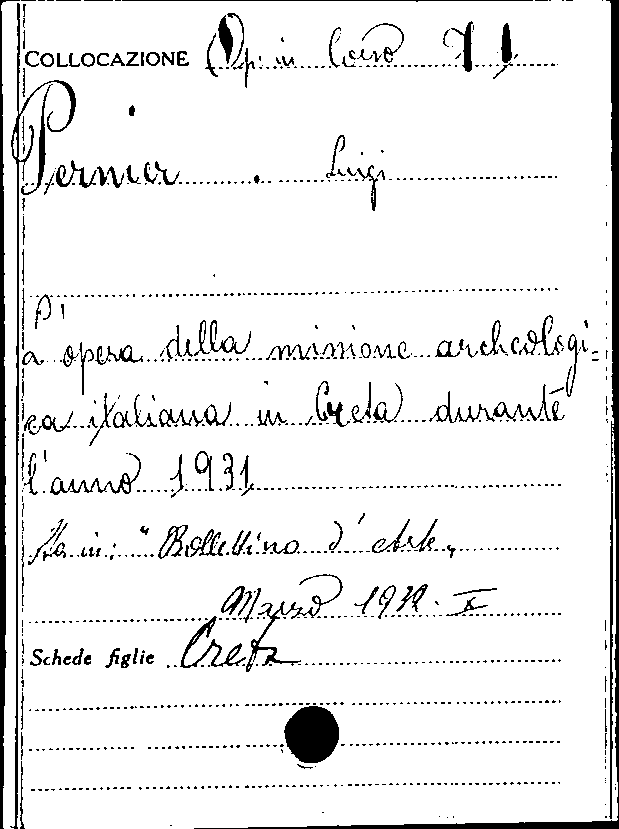 COLLOCAZIONE Op. in Corso 71
Pernier. Luigi
L'opera della missione archeologi=
ca italiana in Creta durante
l'anno 1931
Sta in: "Bollettino d'Arte„
Marzo 1932. X
Schede figlie Creta